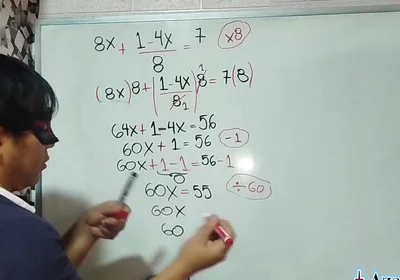 8x + 1-4x/8 = 7 ×8
(8x)8 + (1-4x/8 1) 8 1 = 7(8)
64x + 1-4x = 56
60x + 1 = 56 -1
60x + 1-1 = 56-1
0
60x = 55 ÷60
60x
60